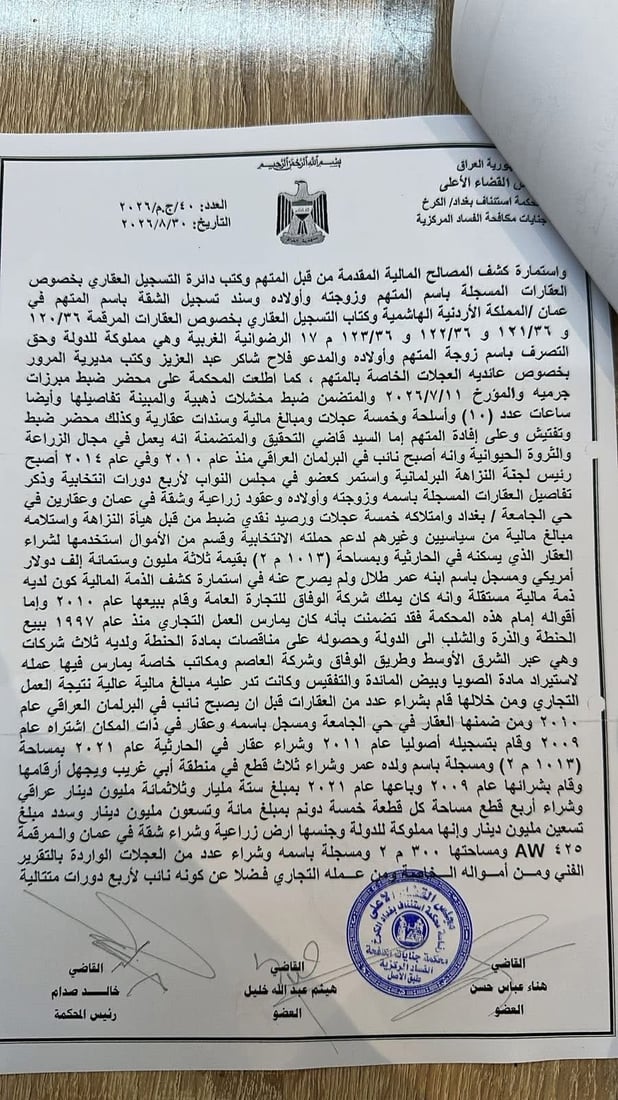 بسم الله الرحمن الرحيم
ورية العراق
س القضاء الأعلى
حكمة استئناف بغداد/ الكرخ
جنايات مكافحة الفساد المركزية
العدد: ٤٠/ج.م/٢٠٢٦
التاريخ: ٢٠٢٦/٨/٣٠
واستمارة كشف المصالح المالية المقدمة من قبل المتهم وكتب دائرة التسجيل العقاري بخصوص
العقارات المسجلة باسم المتهم وزوجته وأولاده وسند تسجيل الشقة باسم المتهم في
عمان /المملكة الأردنية الهاشمية وكتاب التسجيل العقاري بخصوص العقارات المرقمة ١٢٠/٣٦
و ١٢١/٣٦ و ١٢٢/٣٦ و ١٢٣/٣٦ م ١٧ الرضوانية الغربية وهي مملوكة للدولة وحق
التصرف باسم زوجة المتهم وأولاده والمدعو فلاح شاكر عبد العزيز وكتب مديرية المرور
بخصوص عائديه العجلات الخاصة بالمتهم ، كما اطلعت المحكمة على محضر ضبط مبرزات
جرميه والمؤرخ ٢٠٢٦/٧/١١ والمتضمن ضبط مخشلات ذهبية والمبينة تفاصيلها وأيضا
ساعات عدد (١٠) وأسلحة وخمسة عجلات ومبالغ مالية وسندات عقارية وكذلك محضر ضبط
وتفتيش وعلى إفادة المتهم إما السيد قاضي التحقيق والمتضمنة انه يعمل في مجال الزراعة
والثروة الحيوانية وانه أصبح نائب في البرلمان العراقي منذ عام ٢٠١٠ وفي عام ٢٠١٤ أصبح
رئيس لجنة النزاهة البرلمانية واستمر كعضو في مجلس النواب لأربع دورات انتخابية وذكر
تفاصيل العقارات المسجلة باسمه وزوجته وأولاده وعقود زراعية وشقة في عمان وعقارين في
حي الجامعة / بغداد وامتلاكه خمسة عجلات ورصيد نقدي ضبط من قبل هيأة النزاهة واستلامه
مبالغ مالية من سياسيين وغيرهم لدعم حملته الانتخابية وقسم من الأموال استخدمها لشراء
العقار الذي يسكنه في الحارثية وبمساحة (١٠١٣ م ٢) بقيمة ثلاثة مليون وستمائة إلف دولار
أمريكي ومسجل باسم ابنه عمر طلال ولم يصرح عنه في استمارة كشف الذمة المالية كون لديه
ذمة مالية مستقلة وانه كان يملك شركة الوفاق للتجارة العامة وقام ببيعها عام ٢٠١٠ وإما
أقواله إمام هذه المحكمة فقد تضمنت بأنه كان يمارس العمل التجاري منذ عام ١٩٩٧ ببيع
الحنطة والذرة والشلب الى الدولة وحصوله على مناقصات بمادة الحنطة ولديه ثلاث شركات
وهي عبر الشرق الأوسط وطريق الوفاق وشركة العاصم ومكاتب خاصة يمارس فيها عمله
لاستيراد مادة الصويا وبيض المائدة والتفقيس وكانت تدر عليه مبالغ مالية عالية نتيجة العمل
التجاري ومن خلالها قام بشراء عدد من العقارات قبل ان يصبح نائب في البرلمان العراقي عام
٢٠١٠ ومن ضمنها العقار في حي الجامعة ومسجل باسمه وعقار في ذات المكان اشتراه عام
٢٠٠٩ وقام بتسجيله أصوليا عام ٢٠١١ وشراء عقار في الحارثية عام ٢٠٢١ بمساحة
(١٠١٣ م ٢) ومسجلة باسم ولده عمر وشراء ثلاث قطع في منطقة أبي غريب ويجهل أرقامها
وقام بشرائها عام ٢٠٠٩ وباعها عام ٢٠٢١ بمبلغ ستة مليار وثلاثمائة مليون دينار عراقي
وشراء أربع قطع مساحة كل قطعة خمسة دونم بمبلغ مائة وتسعون مليون دينار وسدد مبلغ
تسعين مليون دينار وإنها مملوكة للدولة وجنسها ارض زراعية وشراء شقة في عمان والمرقمة
AW ٤٢٥ ومساحتها ٣٠٠ م ٢ ومسجلة باسمه وشراء عدد من العجلات الواردة بالتقرير
الفني ومن أمواله الخاصة ومن عمله التجاري فضلا عن كونه نائب لأربع دورات متتالية
مجلس القضاء الأعلى
رئاسة محكمة استئناف بغداد الكرخ
محكمة جنايات مكافحة
الفساد المركزية
طبق الأصل
القاضي
هناء عباس حسن
العضو
القاضي
هيثم عبد الله خليل
العضو
القاضي
خالد صدام
رئيس المحكمة